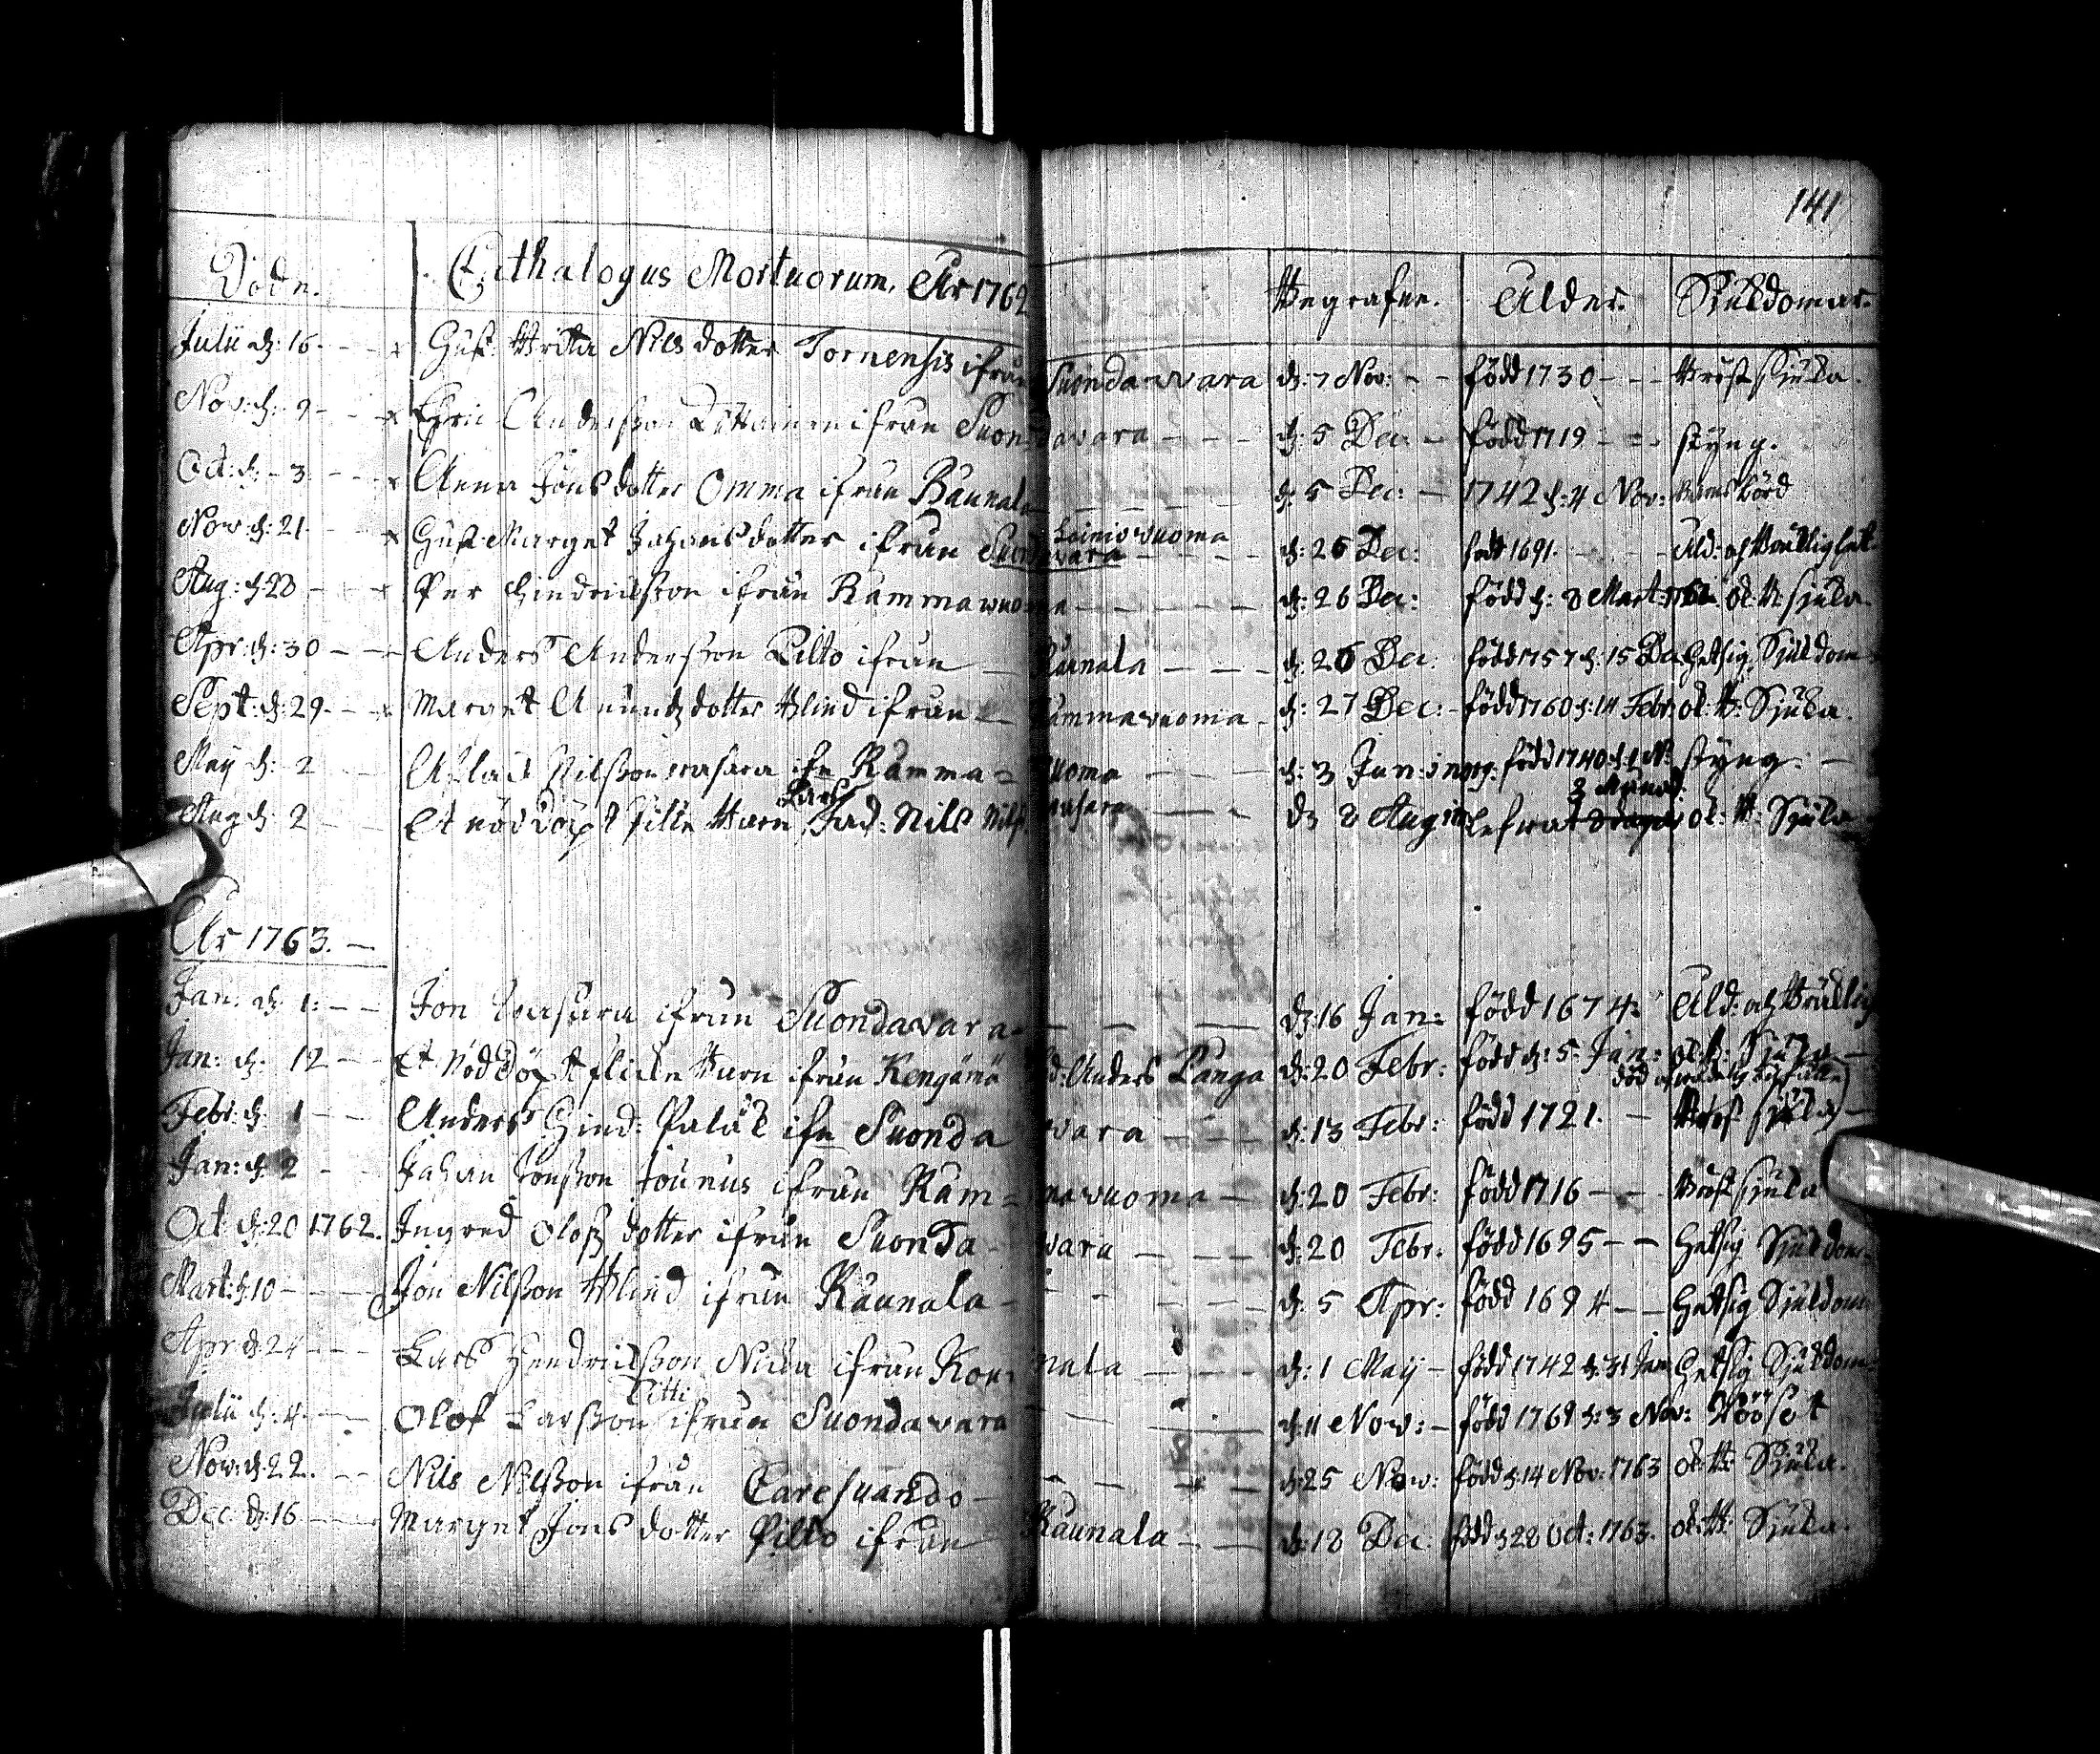 141
Döde. Cathalogus Mortuorum, År 1762 Begrafne. Ålder. Siukdomar.
Julii d: 16. Hust: Brita Nils dotter Tornensis ifrån Suondawara d: 7 Nov: född 1730 Bröst siuka.
Nov: d: 9 Eric Andersson ifrån Suondawara d: 5 Dec: född 1719 styng.
Oct: d: 3 Anna Jons dotter Omma ifrån Raunala d: 5 Dec: 1742 d: 4 Nov: Barns börd
Nov: d: 21 Hust: Marget Johans dotter ifrån Suondavara Lainiovuoma d: 26 Dec: född 1691. Åld: och Bräcklighet
Aug: d: 28 Per Hindricsson ifrån Rammawuoma d: 26 Dec: född d: 8 Mart: 1762 ok: B: sjuka.
Apr: d: 30 Anders Andersson Pilto ifrån Raunala d: 26 Dec: född 1757 d: 15 Dec Hetsig Sjukdom
Sept: d: 29. Marget Anundz dotter Blind ifrån Rammawuoma d: 27 Dec: född 1760 d: 14 Febr: ok: B: Sjuka.
May d: 2 Nilsson Wasara ifn Ramma=wuoma d: 3 Jun: född 1740 styng.
Aug d: 2 Et nöddöpt Barn Lars Fad: Nils Nilss: Wasara d: 8 Aug lefwat 8 dagar 3 Månad: ok: B: Sjuka
År 1763.
Jan: d: 1: Jon Wasara ifrån Suondawara d: 16 Jan: född 1674. Åld: och Bräcklig
Jan: d: 12 Et Nöddöpt flicke Barn ifrån Kengämä Fad: AndersЛанga d: 20 Febr: född d: 5 Jan: ok: B: Sjuka
Febr: d: 1 Anders Hind: Palack ifn Suondawara d: 13 Febr: född 1721. Bröst sjuka
Jan: d: 2 Johan Jonsson Jounus ifrån Ram=mawuoma d: 20 Febr: född 1716 Bröst sjuka
Oct: d: 20 1762. Ingred Olofz dotter ifrån Suondawara d: 20 Febr: född 1695 Hetsig Sjukdom
Mart: d: 10 Jon Nilsson Blind ifrån Raunala d: 5 Apr: född 1694 Hetsig Sjukdom
Apr: d: 24 Lars Hendricsson ifrån Rounala d: 1 Maij född 1742 d: 31 Jan Hetsig Sjukdom
Julii d: 4. Olof Larsson Pitti ifrån Suondawara d: 11 Now: född 1762 d: 3 Nov:
Now: d: 22. Nils Nilsson ifrån Caresuando d: 25 Now: född d: 14 Nov: 1763 ok: B: Sjuka.
Dec: d: 16 Marget Jons dotter Pilto ifrån Raunala d: 18 Dec: född d: 28 Oct: 1763. ok: B: Sjuka.